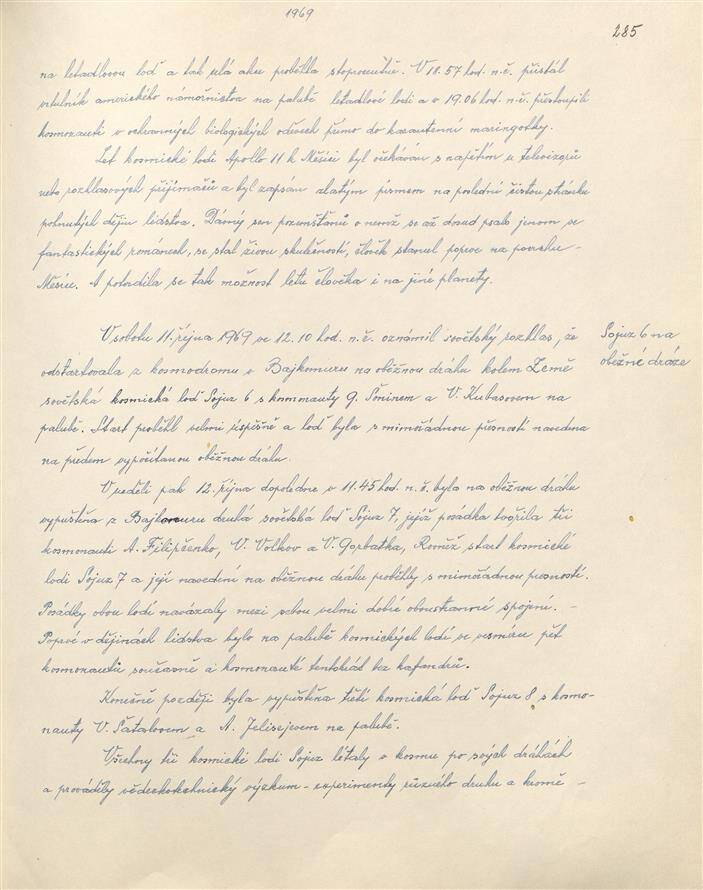 1969
285
na letadlovou loď a tak celá akce proběhla stoprocentně. V 18.57 hod. n.č. přistál
vrtulník amerického námořnictva na palubě letadlové lodi a v 19.06 hod. n.č. přestoupili
kosmonauti v ochranných biologických oděvech přímo do karantenní maringotky.
Let kosmické lodi Apollo 11 k Měsíci byl očekáván s napětím u televizorů
nebo rozhlasových přijímačů a byl zapsán zlatým písmem na poslední čistou stránku
pohnutých dějin lidstva. Dávný sen pozemšťanů o němž se až dosud psalo jenom ve
fantastických románech, se stal živou skutečností, člověk stanul poprve na povrchu -
Měsíce. A potvrdila se tak možnost letu člověka i na jiné planety.
V sobotu 11. října 1969 ve 12.10 hod. n.č. oznámil sovětský rozhlas, že
odstartovala z kosmodromu v Bajkonuru na oběžnou dráhu kolem Země
sovětská kosmická loď Sojuz 6 s kosmonauty G. Šoninem a V. Kubasovem na
palubě. Start proběhl velmi úspěšně a loď byla s mimořádnou přesností navedena
na předem vypočítanou oběžnou dráhu.
Sojuz 6 na
oběžné dráze
V neděli pak 12. října dopoledne v 11.45 hod. n.č. byla na oběžnou dráhu
vypuštěna z Bajkonuru druhá sovětská loď Sojuz 7, jejíž posádku tvořila tři
kosmonauti A. Filipčenko, V. Volkov a V. Gorbatka, Rovněž start kosmické
lodi Sojuz 7 a její navedení na oběžnou dráhu proběhly s mimořádnou přesností.
Posádky obou lodí navázaly mezi sebou velmi dobré oboustranné spojení. -
Poprvé v dějinách lidstva bylo na palubě kosmických lodí ve vesmíru pět
kosmonautů současně a kosmonauté tentokrát bez skafandrů.
Konečně později byla vypuštěna třetí kosmická loď Sojuz 8 s kosmo-
nauty V. Šatalovem a A. Jelisejevem na palubě.
Všechny tři kosmické lodi Sojuz létaly v kosmu po svých dráhách
a prováděly vědeckotechnický výzkum - experimenty různého druhu a kromě -